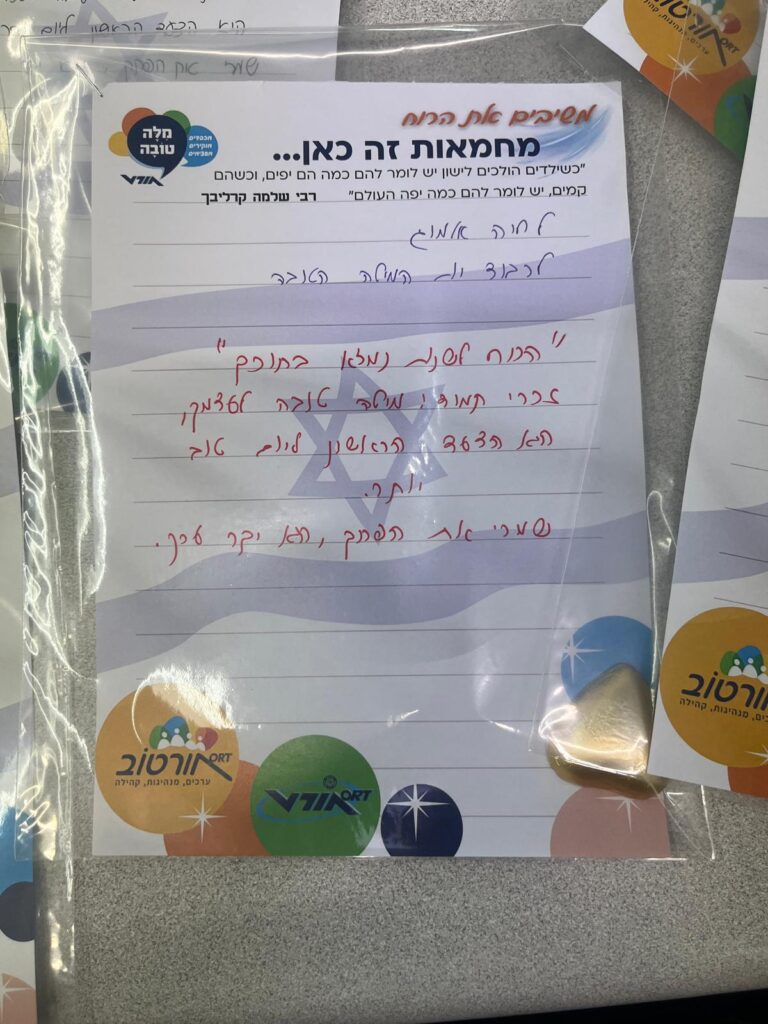 היא הצעד הראשון ליום
משיבים את הרוח
מחמאות זה כאן...
"כשילדים הולכים לישון יש לומר להם כמה הם יפים, וכשהם
קמים, יש לומר להם כמה יפה העולם" רבי שלמה קרליבך
מִלָה
טוֹבָה
מכבדים
חוקרים
אורט
לחיה אלמוג
לכבוד יום המילה הטובה
"הכוח לשנות נמצא בתוכך"
זכרי תמיד! מילה טובה לעצמך,
היא הצעד הראשון ליום טוב
יותר.
שמרי את הפתק, הוא יקר ערך.
ORT
אורטוֹב
ערכים, מנהיגות, קהילה
ORT
אורט
ORT
ערכים, מנהיגות, קהילה
אורטוֹב
מנהיגות, קהילה